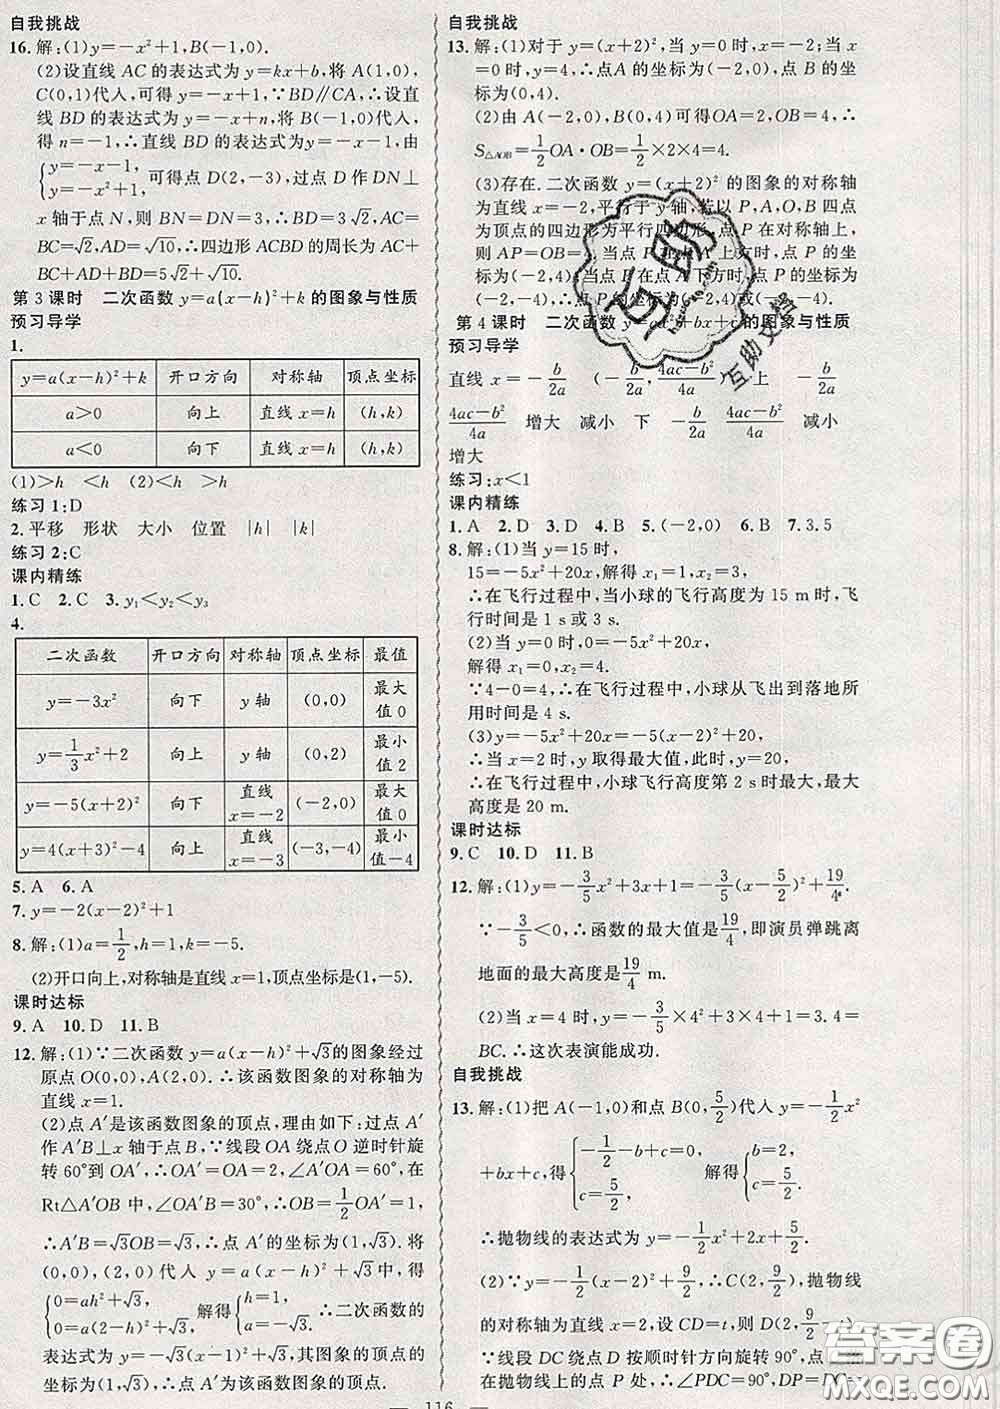 自我挑战
16.解:(1)y=-x²+1,B(-1,0).
(2)设直线AC的表达式为y=kx+b,将A(1,0),
C(0,1)代人,可得y=-x+1.∵BD∥CA,∴设直
线BD的表达式为y=-x+n,将B(-1,0)代人,
得n=-1,∴直线BD的表达式为y=-x-1,由
{y=-x-1,
y=-x²+1,可得点D(2,-3),过点D作DN⊥
x轴于点N,则BN=DN=3,∴BD=3√2,AC=
BC=√2,AD=√10,∴四边形ACBD的周长为AC+
BC+BD+AD=5√2+√10.
第3课时 二次函数y=a(x-h)²+k的图象与性质
预习导学
1.
y=a(x-h)²+k 开口方向 对称轴 顶点坐标
a>0 向上 直线x=h (h,k)
a<0 向下 直线x=h (h,k)
(1)>h <h (2)<h >h
练习1:D
2.平移 形状 大小 位置 |h| |k|
练习2:C
课内精练
1.C 2.C 3.y₁<y₂<y₃
4.
二次函数 开口方向 对称轴 顶点坐标 最值
y=-3x² 向下 y轴 (0,0) 最大值0
y=1/3x²+2 向上 y轴 (0,2) 最小值2
y=-5(x+2)² 向下 直线x=-2 (-2,0) 最大值0
y=4(x+3)²-4 向上 直线x=-3 (-3,-4) 最小值-4
5.A 6.A
7.y=-2(x-2)²+1
8.解:(1)a=1/2,h=1,k=-5.
(2)开口向上,对称轴是直线x=1,顶点坐标是(1,-5).
课时达标
9.A 10.D 11.B
12.解:(1)∵二次函数y=a(x-h)²+√3的图象经过
原点O(0,0),A(2,0).∴该函数图象的对称轴为
直线x=1.
(2)点A′是该函数图象的顶点,理由如下:过点A′
作A′B⊥x轴于点B.∵线段OA绕点O逆时针旋
转60°到OA′,∴OA′=OA=2,∠A′OA=60°,在
Rt△A′OB中,∠OA′B=30°,∴OB=1/2OA′=1,
∴A′B=√3OB=√3,∴点A′的坐标为(1,√3).将
(0,0),(2,0)代人y=a(x-h)²+√3中,得
{0=ah²+√3, 解得{h=1,
0=a(2-h)²+√3, a=-√3,∴二次函数的
表达式为y=-√3(x-1)²+√3,∴函数图象的顶点的
坐标为(1,√3),∴点A′为该函数图象的顶点.
自我挑战
13.解:(1)对于y=(x+2)²,当y=0时,x=-2,当x
=0时,y=4,∴点A的坐标为(-2,0),点B的坐
标为(0,4).
(2)由A(-2,0),B(0,4)可得OA=2,OB=4,∴
S△AOB=1/2OA·OB=1/2×2×4=4.
(3)存在.二次函数y=(x+2)²的图象的对称轴
为直线x=-2,平行于y轴,若以P,A,O,B四点
为顶点的四边形为平行四边形,点P在对称轴上,
则AP=OB=4,当点P在点A上方时,点P的坐标为
(-2,4);当点P在点A下方时,点P的坐标为
(-2,-4),∴点P的坐标为(-2,4)或(-2,-4).
第4课时 二次函数y=ax²+bx+c的图象与性质
预习导学
直线x=-b/2a (-b/2a,4ac-b²/4a) 上 -b/2a
4ac-b²/4a 增大 减小 下 -b/2a 4ac-b²/4a 减小
增大
练习:x<1
课内精练
1.A 2.D 3.D 4.B 5.(-2,0) 6.B 7.3.5
8.解:(1)当y=15时,
15=-5x²+20x,解得x₁=1,x₂=3,
∴在飞行过程中,当小球的飞行高度为15 m时,飞
行时间是1 s或3 s.
(2)当y=0时,0=-5x²+20x,
解得x₁=0,x₂=4.
∵4-0=4,∴在飞行过程中,小球从飞出到落地所
用时间是4 s.
(3)y=-5x²+20x=-5(x-2)²+20,
∴当x=2时,y取得最大值,此时,y=20,
∴在飞行过程中,小球飞行高度第2 s时最大,最大
高度是20 m.
课时达标
9.C 10.D 11.B
12.解:(1)y=-3/5x²+3x+1=-3/5(x-5/2)²+19/4.
∵-3/5<0,∴函数的最大值是19/4,即演员弹跳离
地面的最大高度是19/4 m.
(2)当x=4时,y=-3/5×4²+3×4+1=3.4=
BC.∴这次表演能成功.
自我挑战
13.解:(1)把A(-1,0)和点B(0,5/2)代人y=-1/2x²
+bx+c,得{-1/2-b+c=0, c=5/2. 解得{b=2, c=5/2.
∴抛物线的表达式为y=-1/2x²+2x+5/2.
(2)∵y=-1/2(x-2)²+9/2,∴C(2,9/2),抛物线
的对称轴为直线x=2,设CD=t,则D(2,9/2-t)
∵线段DC绕点D按顺时针方向旋转90°,点
在抛物线上的点P处,∴∠PDC=90°,DP=DC=
116
互助
互助文学
答案圈
MXQE.COM